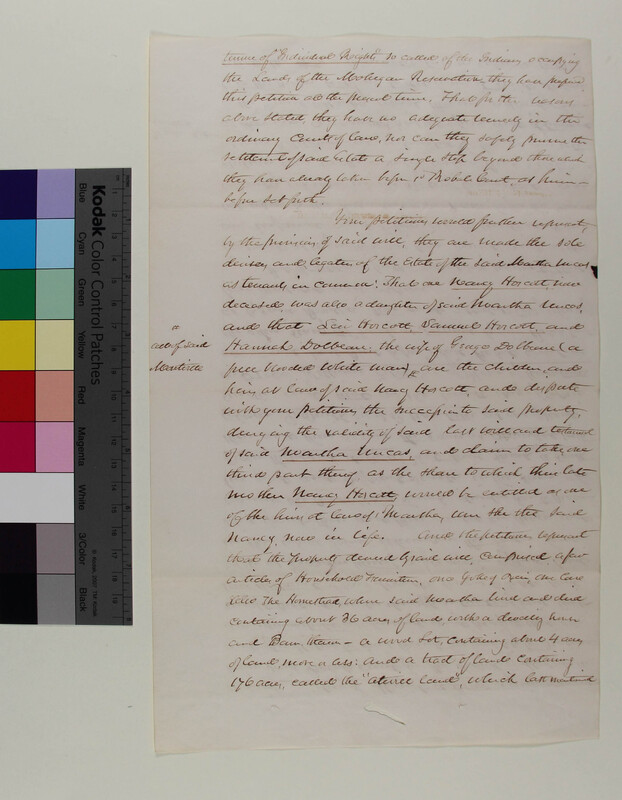 Kodak
Color Control Patches
Blue
Cyan
Green
Yellow
Red
Magenta
White
3/Color
Black
© Kodak, 2007 TM: Kodak
tenure of "Individual Rights" so called of the Indians occupying
the Lands of the Mohegan Reservation, they have prefered
this petition at the present term. That for the reasons
above stated, they have no adequate remedy in the
ordinary Courts of law, nor can they safely pursue the
settlement of said Estate a single step beyond those which
they have already taken before sd Probate Court, as herein-
before set forth.
Your petitioners would further represent,
by the provisions of said will, they are made the sole
devisees and legatees of the Estate of the said Martha Uncas
as tenants in common: That one Nancy Horscott, now
deceased was also a daughter of said Martha Uncas,
and that Levi Horscott, Samuel Horscott, and
all of said
Montville
Hannah Dolbeare, the wife of George Dolbeare (a
free blooded white man) are the children, and
heirs at law of said Nancy Horscott, and dispute
with your petitioners the succession to said property,
denying the validity of said last will and testament
of said Martha Uncas, and claim to take one
third part thereof as the share to which their late
mother Nancy Horscott would be entitled as one
of the heirs at law of sd Martha, were she the said
Nancy, now in life. And the petitioners represent
that the property devised by said will, comprised a few
articles of Household Furniture, one Yoke of Oxen, one Cow
Also The Homestead, where said Martha lived and died
containing about 36 acres of land with a dwelling house
and Barn thereon - a wood lot, containing about 4 acres
of land, more or less: and a tract of land containing
176 acres, called the land", which last mentioned